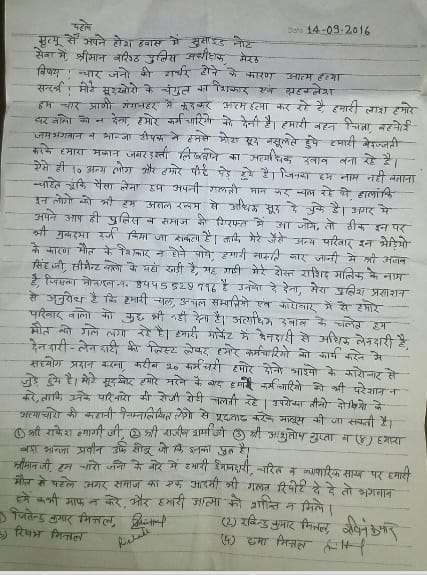 DATE 14-09-2016
पहले
मृत्यु से अपने होश हवास में सुसाइड नोट
सेवा में, श्रीमान वरिष्ठ पुलिस अधीक्षक, मेरठ
विषय: चार जनो की मार्चर होने के कारण आत्म हत्या
सन्दर्भ: मोटे सूदखोरो के चंगुल का शिकार एवं ग्रहक्लेश
हम चार प्राणी गंगनहर में कूदकर आत्महत्या कर रहे है हमारी लाश हमारे
घर वालो को न देना, हमारे कर्मचारियो को देनी है। हमारी बहन चित्रा, बहनोई
जयभगवान व भान्जा दीपक ने हमसे मोटा सूद वसूलते हुये हमारी बेइज्जती
करके हमारा मकान जबरदस्ती लिखवाने का अत्यधिक दबाव बना रहे है।
ऐसे ही 10 अन्य लोग और हमारे पीछे पड़े हुये है। जिनका हम नाम नही बताना
चाहते चूंकि पैसा लेना हम अपनी गलती मान कर चल रहे थे, हालांकि
इन लोगो को भी हम असल रकम से अधिक सूद दे चुके है। अगर ये
अपने आप ही पुलिस व समाज की गिरफ्त में आ जाये, तो ठीक इन पर
भी मुकदमा दर्ज किया जा सकता है। ताकि मेरे जैसे अन्य परिवार इन भेड़ियो
के कारण मौत के शिकार न होने पाये, हमारी मारूति कार जानी में श्री अजब
सिंह जी, सीमेन्ट वालो के यहां खड़ी है, यह गाड़ी मेरे दोस्त राशिद मलिक के नाम
है, जिसका मोबाइल नं० उनको दे देना, मेरा पुलिस प्रशासन
से अनुरोध है कि हमारी चल, अचल सम्पत्तियो एवं कारोबार में से हमारे
परिवार वालो को कुछ भी नही देना है। अत्यधिक दबाव के चलते हम
मौत को गले लगा रहे है। हमारी मार्केट में देनदारी से अधिक लेनदारी है,
देनदारी-लेनदारी की लिस्ट लेकर हमारे कर्मचारियो को कार्य करने में
सहयोग प्रदान करना, करीब 20 कर्मचारी हमारे दोनो भाइयो के कारोबार से
जुड़े हुये है। मोटे सूदखोर हमारे मरने के बाद हमारे कर्मचारियो को भी परेशान न
करे, ताकि उनके परिवारो की रोजी रोटी चलती रहे। उपरोक्त तीनो दोषियो के
अत्याचारो की कहानी निम्नलिखित लोगो से पूछताछ करके मालूम की जा सकती है।
① श्री राकेश त्यागी जी, ② श्री राजीव शर्मा जी ③ श्री आशुतोष गुप्ता व (4) हमारा
बड़ा भान्जा प्रवीन उर्फ सोनू जो कि इनका पुत्र है।
श्रीमान जी, हम चारो जनो के बारे में हमारी ईमानदारी, चरित्र व व्यापारिक साख पर हमारी
मौत से पहले अगर समाज का एक आदमी भी गलत रिपोर्ट दे दे तो भगवान
हमे कभी माफ न करे, और हमारी आत्मा को शान्ति न मिले।
जितेन्द्र कुमार मित्तल, (2) रविन्द्र कुमार मित्तल, रविन्द्र कुमार
रिषभ मित्तल (4) उमा मित्तल